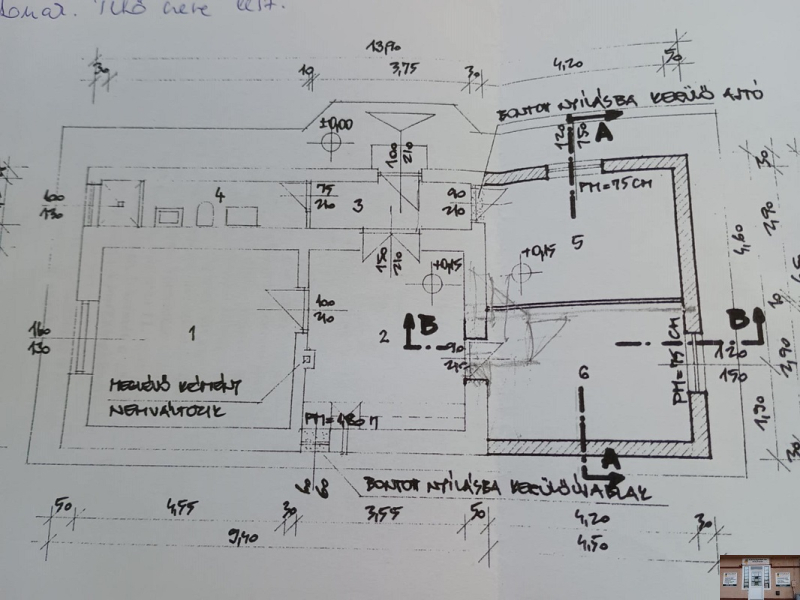 13,90
30
10
3,75
30
4,20
30
BONTOTT NYÍLÁSBA KERÜLŐ AJTÓ
±0,00
A
120
150
100
210
PM=75CM
60
130
4
75
210
3
90
210
5
4,60
30
2,90
150
210
+0,15
+0,15
10
160
130
1
100
210
2
B
90
210
PM=75CM
B
120
150
2,90
MEGLÉVŐ KÉMÉNY
NEM VÁLTOZIK
6
1,90
PM=480
60
60
A
BONTOTT NYÍLÁSBA KERÜLŐ ÚJ ABLAK
30
50
4,55
30
3,55
50
4,20
30
9,40
4,50